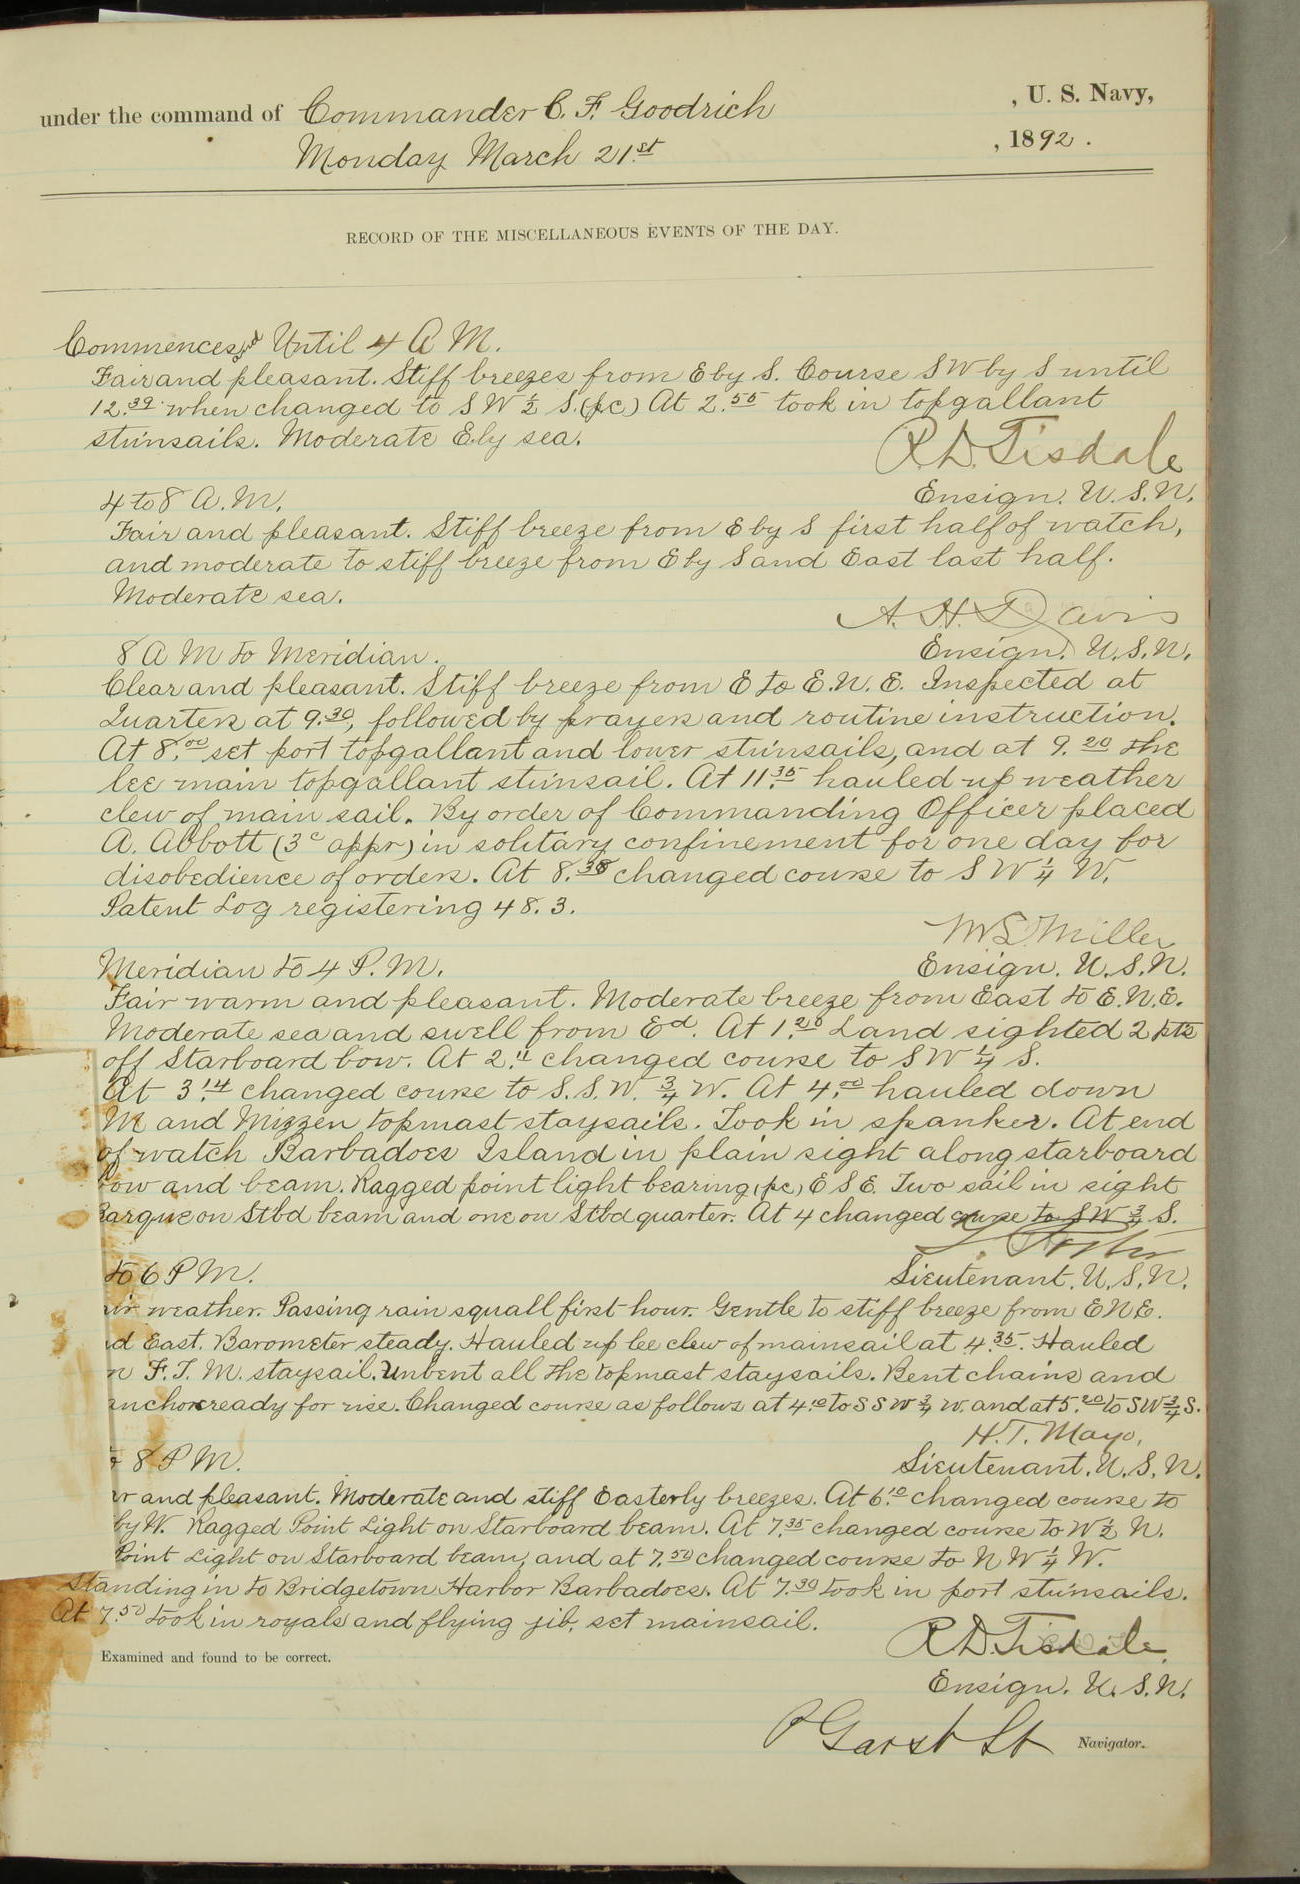 under the command of Commander C. F. Goodrich , U. S. Navy,
Monday March 21st , 1892 .
RECORD OF THE MISCELLANEOUS EVENTS OF THE DAY.
Commences and Until 4 A M.
Fair and pleasant. Stiff breezes from E by S. Course S W by S until
12.39 when changed to S W ½ S. (p.c) At 2.55 took in topgallant
stunsails. Moderate E.ly sea.
R. D. Tisdale
Ensign. U. S. N.
4 to 8 A. M.
Fair and pleasant. Stiff breeze from E by S first half of watch,
and moderate to stiff breeze from E by S and East last half.
Moderate sea.
A. H. Davis
Ensign. U. S. N.
8 A M to Meridian.
Clear and pleasant. Stiff breeze from E to E. N. E. Inspected at
Quarters at 9.30, followed by prayers and routine instruction.
At 8.00 set port topgallant and lower stunsails, and at 9.20 the
lee main topgallant stunsail. At 11.35 hauled up weather
clew of main sail. By order of Commanding Officer placed
A. Abbott (3c appr) in solitary confinement for one day for
disobedience of orders. At 8.38 changed course to S W ¼ W.
Patent Log registering 48.3.
M L Miller
Ensign. U. S. N.
Meridian to 4 P. M.
Fair warm and pleasant. Moderate breeze from East to E. N. E.
Moderate sea and swell from Ed. At 1.20 Land sighted 2 pts
off Starboard bow. At 2.11 changed course to S W ¼ S.
At 3.14 changed course to S. S. W. ¾ W. At 4.00 hauled down
M and Mizzen topmast staysails. Took in spanker. At end
of watch Barbadoes Island in plain sight along starboard
bow and beam. Ragged point light bearing (p.c) E S E. Two sail in sight
Barque on Stbd beam and one on Stbd quarter. At 4 changed course to S W ¾ S.
Lieutenant. U. S. N.
to 6 P M.
weather. Passing rain squall first hour. Gentle to stiff breeze from E N E.
East. Barometer steady. Hauled up lee clew of mainsail at 4.35. Hauled
F. T. M. staysail. Unbent all the topmast staysails. Bent chains and
anchors ready for rise. Changed course as follows at 4.10 to S S W ¾ W. and at 5.20 to S W ¾ S.
H. T. Mayo,
Lieutenant. U. S. N.
8 P M.
and pleasant. Moderate and stiff Easterly breezes. At 6.10 changed course to
by W. Ragged Point Light on Starboard beam. At 7.35 changed course to W ½ N.
Point Light on Starboard beam, and at 7.50 changed course to N W ¼ W.
Standing in to Bridgetown Harbor Barbadoes. At 7.30 took in port stunsails.
At 7.50 took in royals and flying jib, set mainsail.
R. D. Tisdale.
Examined and found to be correct.
Ensign. U. S. N.
P Garst Lt Navigator.